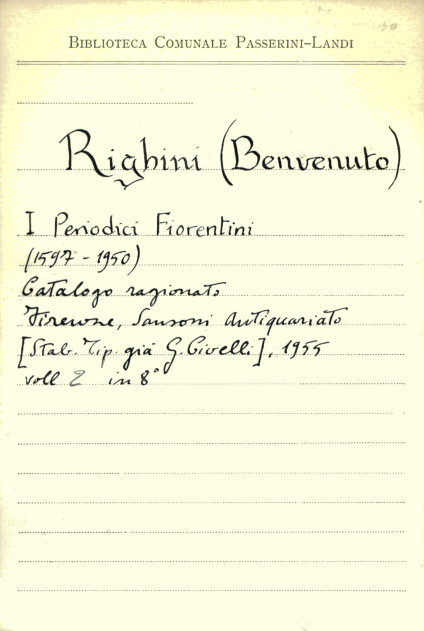 BIBLIOTECA COMUNALE PASSERINI-LANDI
Righini (Benvenuto)
I Periodici Fiorentini
(1597 - 1950)
Catalogo ragionato
Firenze, Sansoni Antiquariato
[Stab. Tip. già G. Civelli], 1955
voll 2 in 8°